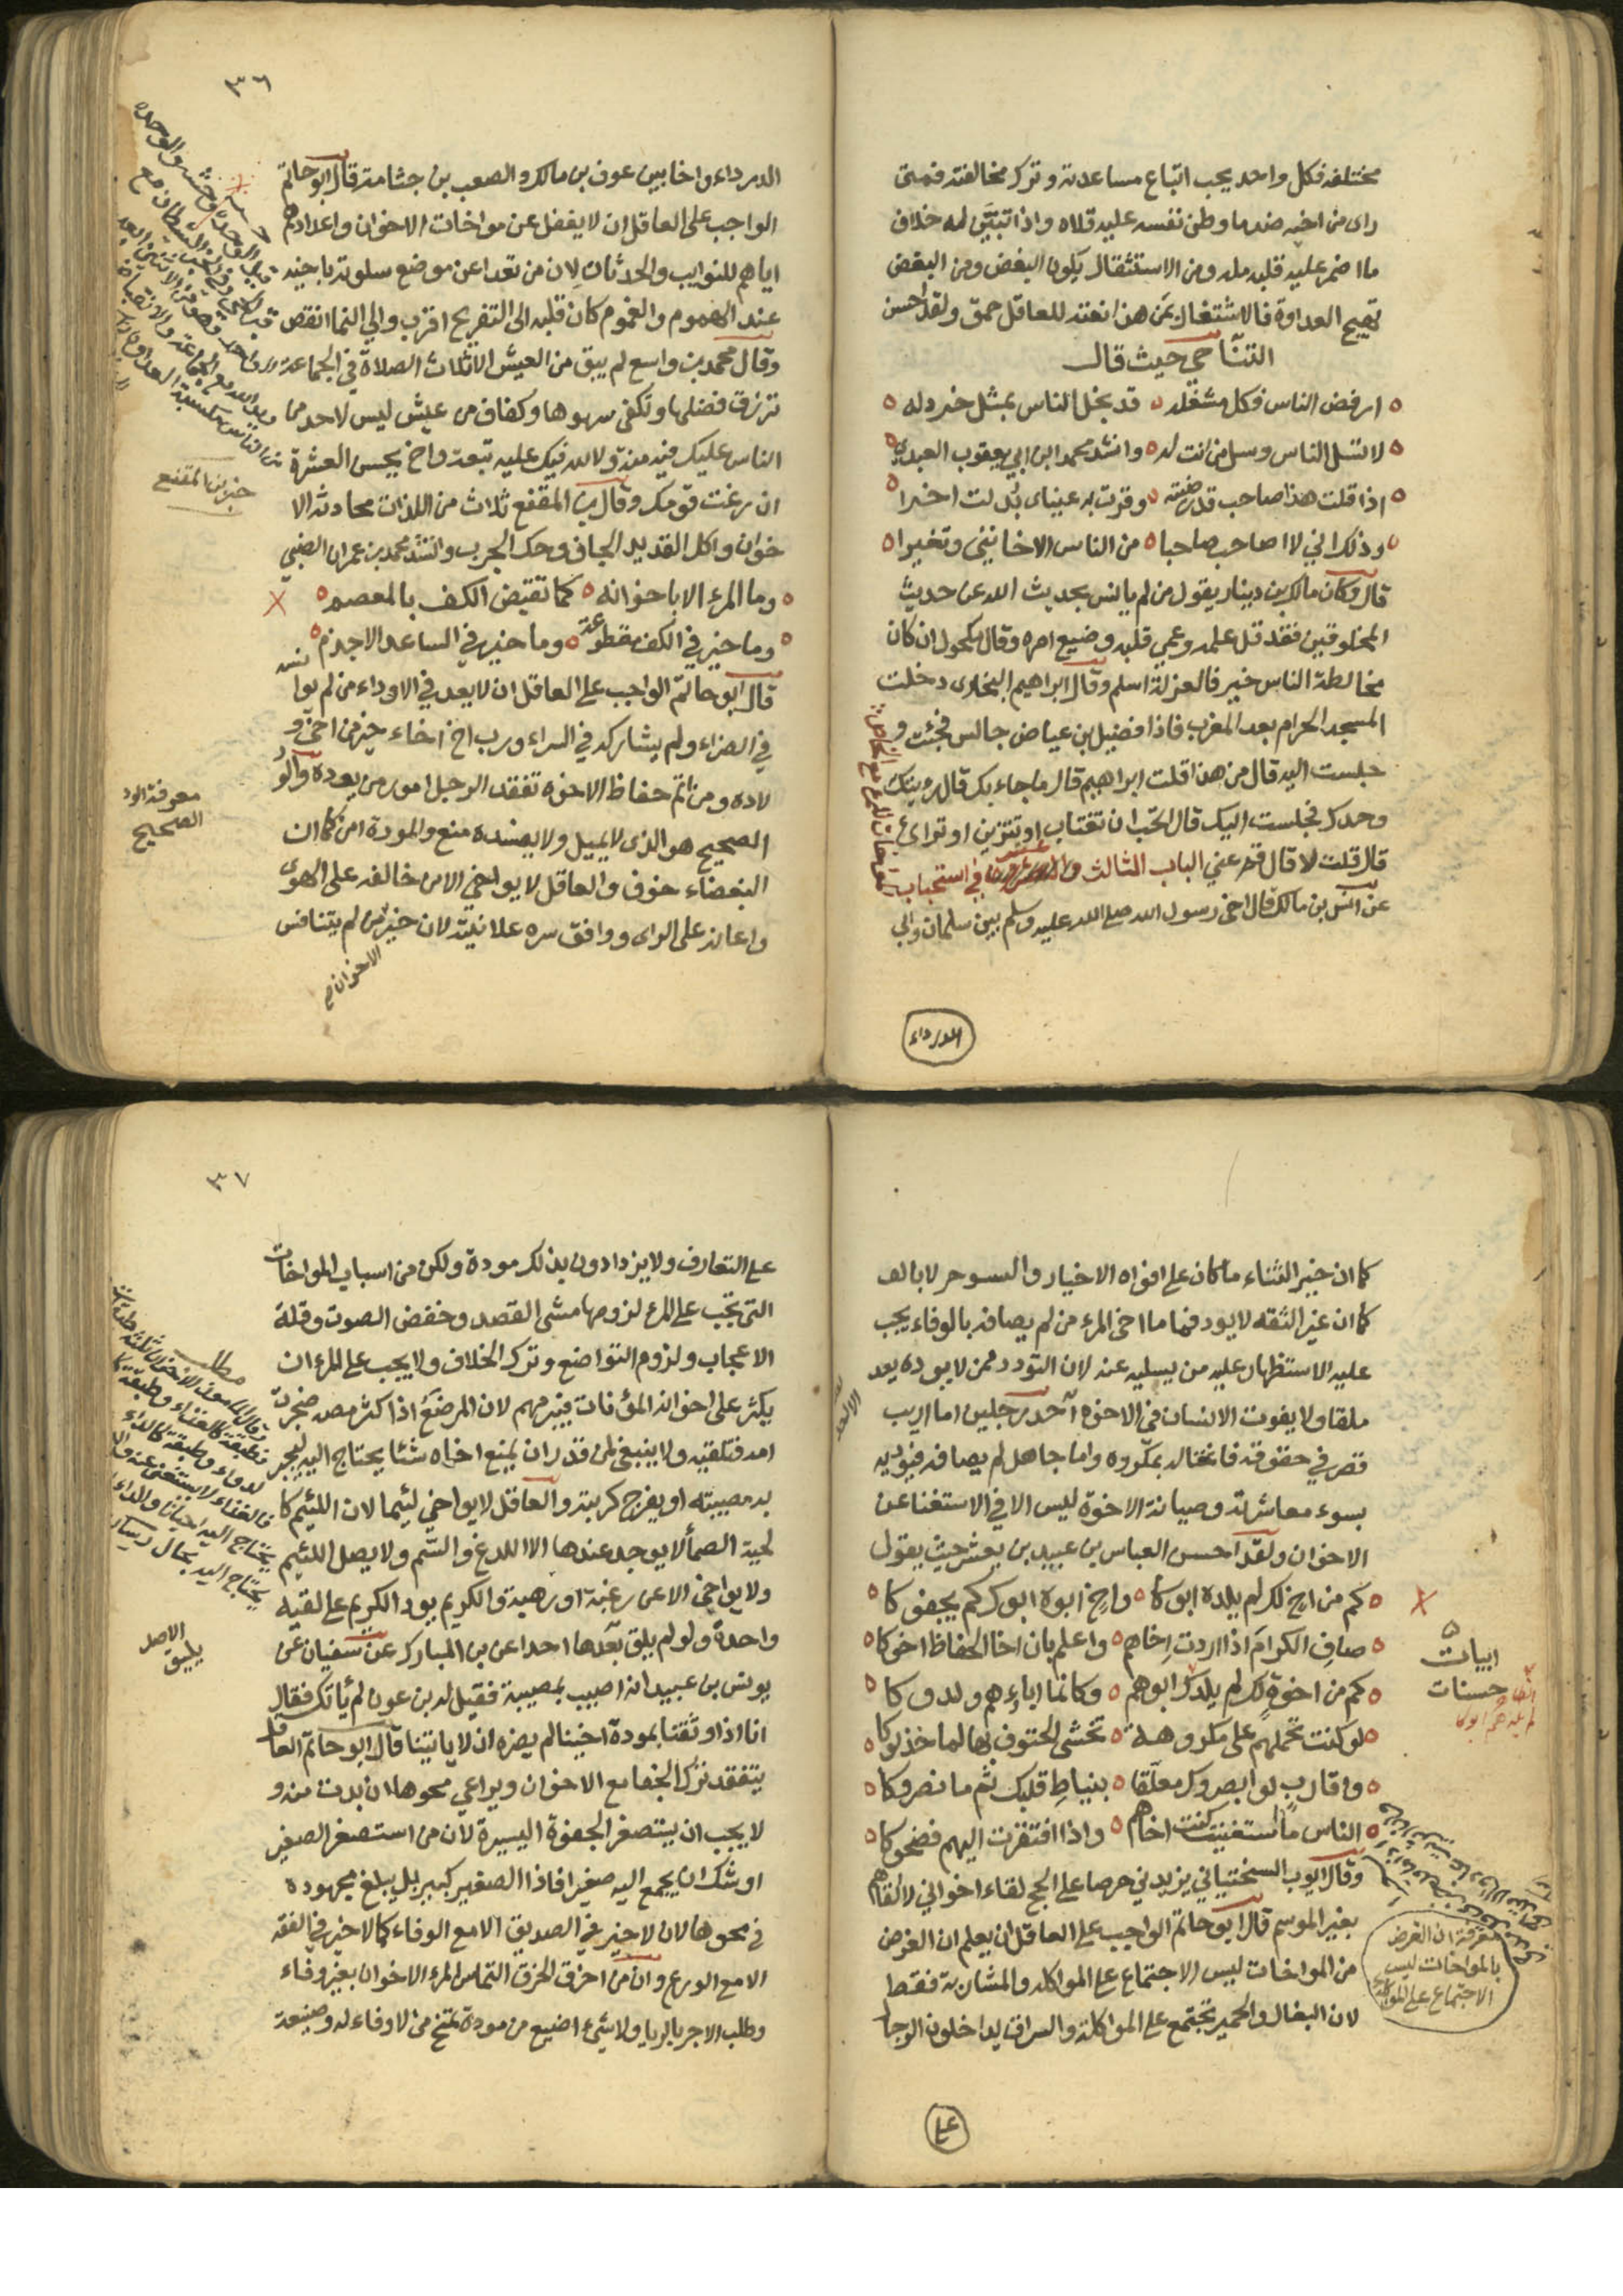 مختلفه فكل واحد يجب اتباع مساعدته وترك مخالفته فمتى
راى من اخيه ضد ما وطن نفسه عليه قلاه واذا تبيّن له خلاف
ما اضمر عليه قلبه مله ومن الاستثقال يكون البغض ومن البغض
تهيج العداوة فالاشتغال بمن هذا نعته للعاقل حمق ولقد احسن
التناحي حيث قال
ارفض الناس فكل مشغله قد بخل الناس بمثل خردله
لا تسل الناس وسل من انت له وانشد محمد ابن ابي يعقوب العبدي
اذا قلت هذا صاحب قد رضيته وقرت به عيناى بُدلت اخرا
وذلك اني لا اصاحب صاحبا من الناس الا خانني وتغيرا
قال وكان مالك بن دينار يقول من لم يانس بحديث الله عن حديث
المخلوقين فقد قل علمه وعمي قلبه وضيع امره وقال مكحول ان كان
مخالطة الناس خير فالعزلة اسلم وقال ابراهيم البخارى دخلت
المسجد الحرام بعد المغرب فاذا فضيل بن عياض جالس فجئت و
جلست اليه قال من هذا قلت ابراهيم قال ما جاء بك قال رايتك
وحدك فجلست اليك قال تحب ان تغتاب او تتزين او تراىٔ
قال قلت لا قال قم عني الباب الثالث في استحباب
عن انس بن مالك قال اخى رسول الله صلى الله عليه وسلم بين سلمان وابي
الدرداء
٣٦
الدرداء واخا بين عوف بن مالك والصعب بن جثامة قال ابو حاتم
الواجب على العاقل ان لا يغفل عن مواخات الاخوان واعدادهم
اياهم للنوايب والحدثان لان من تعدا عن موضع سلوته باخيه
عند الهموم والغموم كان قلبه الى التفريح اقرب والى النما انقص
وقال محمد بن واسع لم يبق من العيش الا ثلاث الصلاة في الجماعة
ترزق فضلها وتكفى سهوها وكفاف من عيش ليس لاحد من
الناس عليك فيه منة ولا لله فيك عليه تبعة واخ يحسن العشرة
ان زغت قوّمك وقال بن المقفع ثلاث من اللذات محادثة الا
خوان واكل القديد الجاف وحك الجرب وانشد محمد بن عمران الضبي
وما المرء الا باخوانه كما تقبض الكف بالمعصم
وما خير في الكف مقطوعة وما خير في الساعد الاجذم
قال ابو حاتم الواجب على العاقل ان لا يعد في الاوداء من لم يوا
في الضراء ولم يشاركه في السراء ورب اخ اخاء خير من اخ و
لاده ومن اتم حفاظ الاخوه تفقد الرجل امور من يوده والو
الصحيح هو الذى لا يميل ولا يفسده منع والمودة امن كما ان
البغضاء خوف والعاقل لا يواخي الا من خالفه على الهوى
واعانه على الراى ووافق سره علانيته لان خير من لم يتنافس
الاخوان
خبر ابن المقفع
معرفة الود
الصحيح
كما ان خير الثناء ما كان على افواه الاخيار
كما ان غير الثقه لا يود فما ما اخى المرء من لم يصافه بالوفاء يجب
عليه الاستظهار عليه من يسليه عنه لان التودد ممن لا يوده يعد
ملقا ولا يفوت الانسان في الاخوه احد رجلين اما اريب
قصر في حقوقه فاغتاله بمكروه واما جاهل لم يصافه فيؤذيه
بسوء معاشرته وصيانة الاخوة ليس الا في الاستغنا عن
الاخوان ولقد احسن العباس بن عبيد بن يعيش حيث يقول
كم من اخ لك لم يلده ابوكا واخ ابوه ابوك كم يجفوكا
صاف الكرام اذا اردت اخاهم واعلم بان اخا الحفاظ اخوكا
كم من اخوة لك لم يلدك ابوهم وكانما اباؤهم ولدوكا
لو كنت تحملهم على مكروهة تخشى الحتوف بها لما خذلوكا
واقارب لو ابصروك معلّقا بنياط قلبك ثم ما نصروكا
الناس ما استغنيت كنت اخاهم واذا افتقرت اليهم فضحوكا
وقال ايوب السختياني يزيدني حرصا على الحج لقاء اخواني لا القاهم
بغير الموسم قال ابو حاتم الواجب على العاقل ان يعلم ان الغرض
من المواخات ليس الاجتماع على المواكله والمشاربة فقط
لان البغال والحمير تجتمع على المواكلة والسراق يداخلون الرجا
على
ابيات
حسنات
معرفة ان الغرض
بالمواخات ليس
الاجتماع على المواكلة
٣٧
على التعارف ولا يزدادون بذلك مودة ولكن من اسباب المواخات
التى يجب على المرء لزومها مشى القصد وخفض الصوت وقلة
الاعجاب ولزوم التواضع وترك الخلاف ولا يجب على المرء ان
يكثر على اخوانه المؤنات فيبرمهم لان المرضَع اذا كثر مصه ضجرت
امه فتلقيه ولا ينبغى لمن قدر ان يمنع اخاه شئا يحتاج اليه ليجبر
به مصيبته او يفرج كربته والعاقل لا يواخي لئيما لان اللئيم كا
لحية الصمأ لا يوجد عندها الا اللدغ والسّم ولا يصل اللئيم
ولا يواخى الا عن رغبة او رهبة والكريم يود الكريم على لقيه
واحدة ولو لم يلق بعدها احدا عن بن المبارك عن سفيان عن
يونس بن عبيد انه اصيب بمصيبة فقيل له بن عون لم يأتك فقال
انا اذا وثقنا بمودة اخينا لم يضره ان لا ياتينا قال ابو حاتم العاقل
يتفقد ترك الجفا مع الاخوان ويراعي محوها ان بدت منه و
لا يجب ان يستصغر الجفوة اليسيرة لان من استصغر الصغير
اوشك ان يجمع اليه صغيرا فاذا الصغير كبير بل يبلغ مجهوده
في محوها لان لا خير في الصديق الا مع الوفاء كما لا خير في الفقه
الا مع الورع وان من اخرق الخرق التماس المرء الاخوان بغير وفاء
وطلب الاجر بالريا ولا شيء اضيع من مودة تمنح من لا وفاء له وصنيعة
مطلب